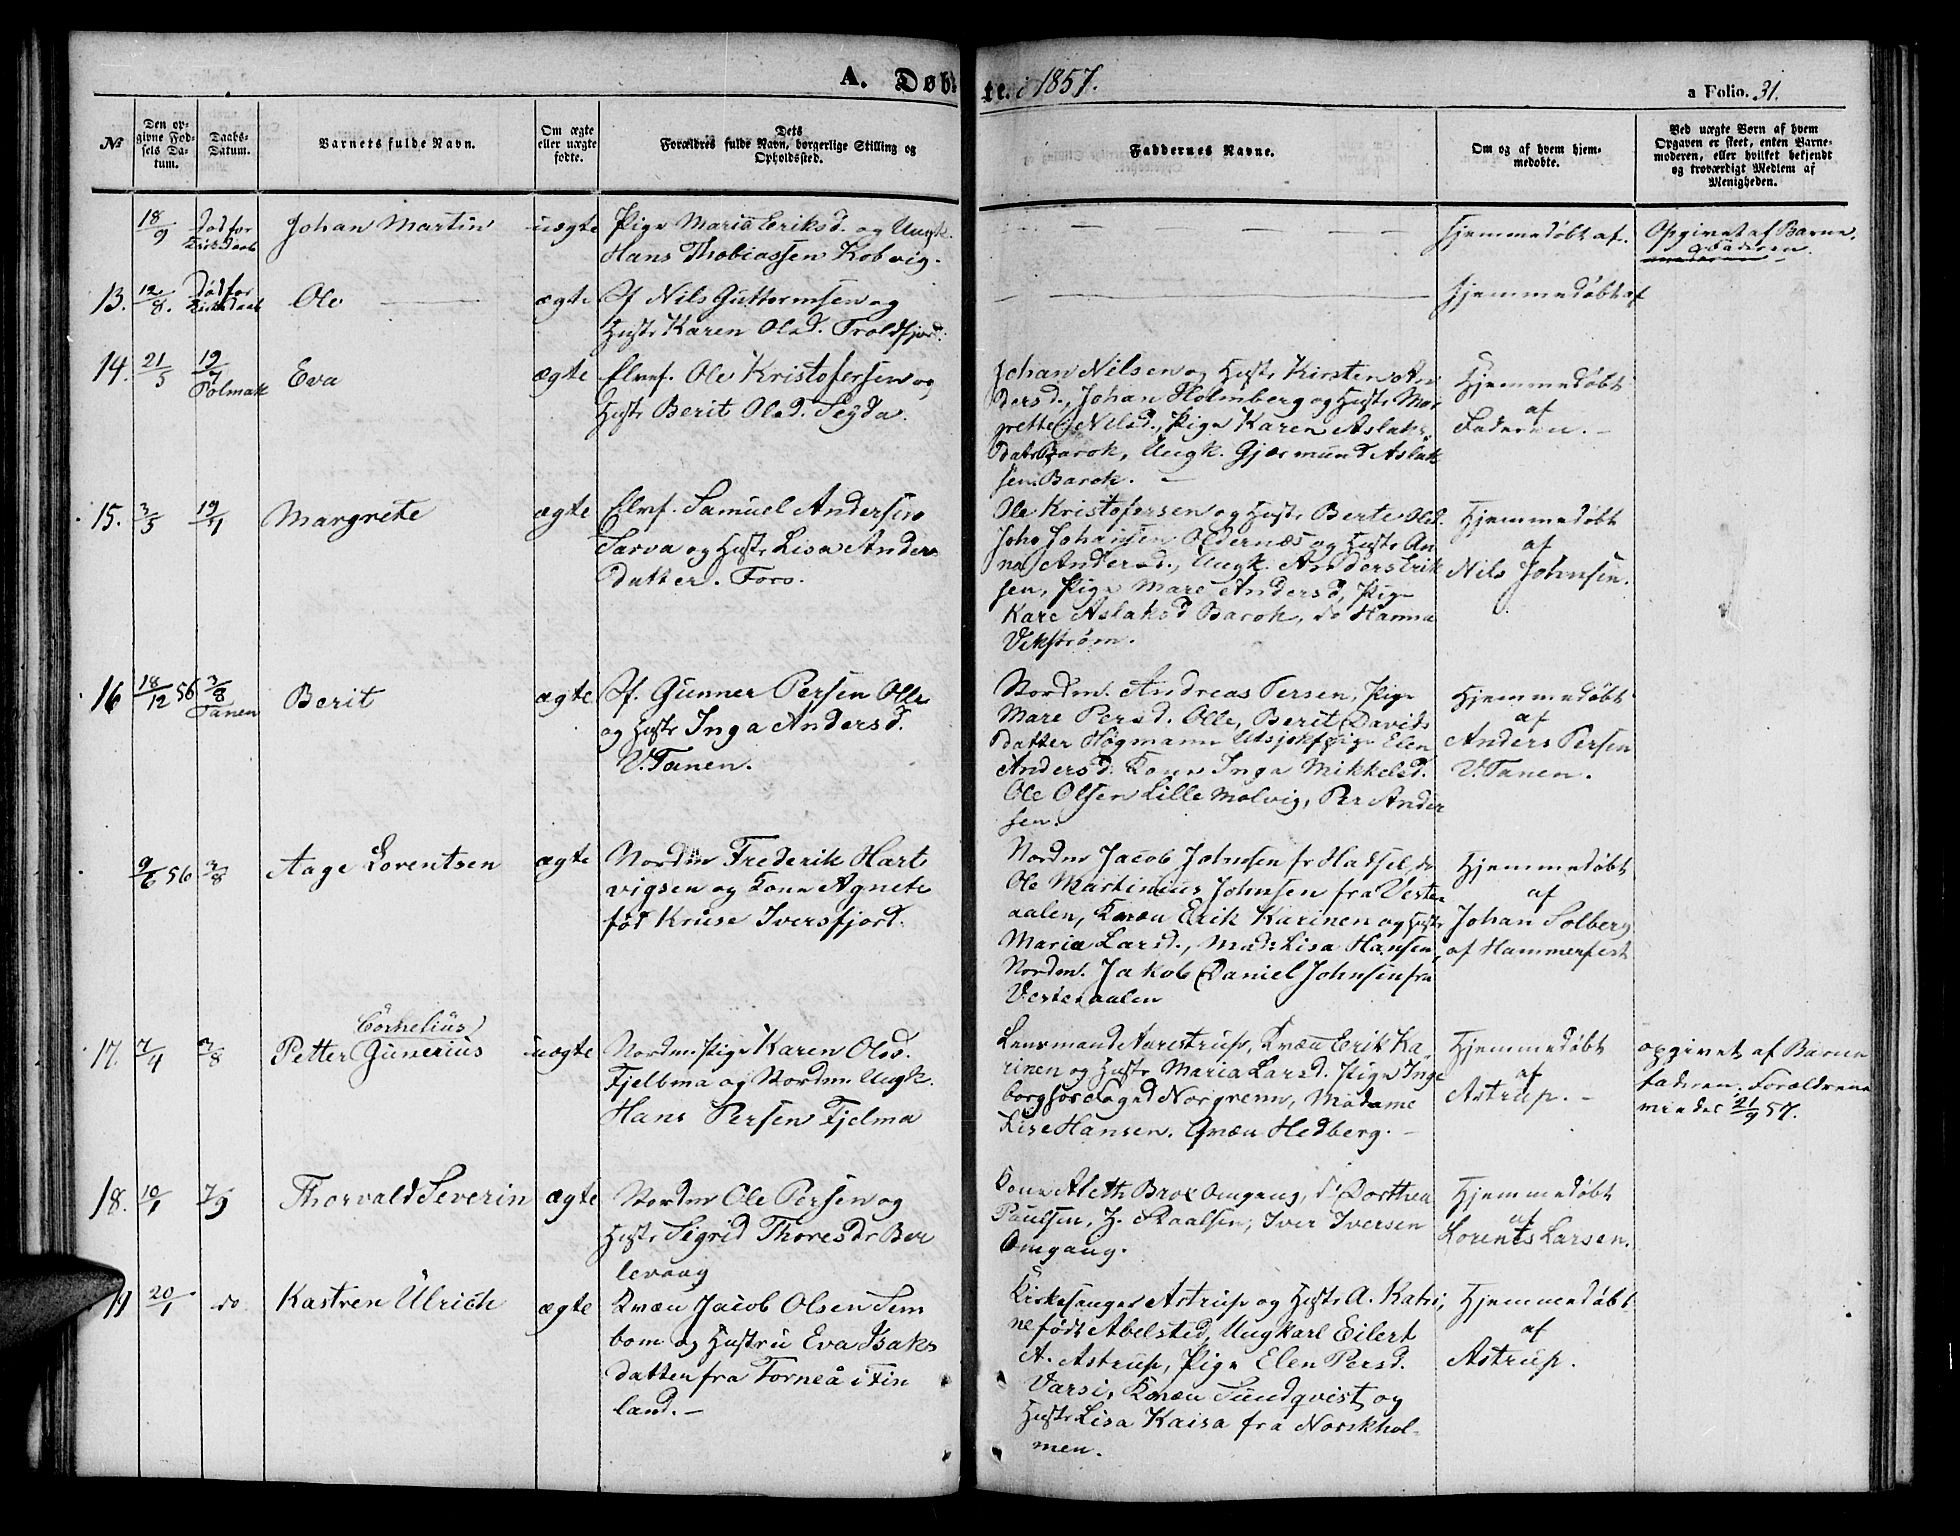 A. Døbte i 1857.
a Folio. 31.
No
Den opgivne Fødsels Datum.
Daabs-Datum.
Barnets fulde Navn.
Om ægte eller uægte fødte.
Dets Forældres fulde Navn, borgerlige Stilling og Opholdssted.
Faddernes Navne.
Om og af hvem hjemmedøbte.
Ved uægte Børn af hvem Opgaven er skeet, enten Barnemoderen, eller hvilket bekjendt og troværdigt Medlem af Menigheden.
18/9
Død før
Kirkedaab
Johan Martin
uægte
Pige Maria Eriksd. og Ungk.
Hans Thobiassen Kobvig.
Hjemmedøbt af.
Opgivet af Barne
faderen.
13.
12/8.
Død før
Kirkedaab
Ole
ægte
Sf Nils Guttormsen og
Hustr Karen Olsd. Troldfjord.
Hjemmedøbt af
14.
21/5
19/7
Polmak
Eva
ægte
Elvef. Ole Kristofersen og
Hustr Berit Olsd. Segda.
Johan Nilsen og Hustr Kirsten An
dersd., Johan Holmberg og Hustr Mar
grette Nilsd., Pige Karen Aslaks
datr Barok, Ungk. Gjermund Aslak
sen Barok. –
Hjemmedøbt
af
Faderen. –
15.
3/5
19/7
Margrete
ægte
Elvef. Samuel Andersen
Sarva og Hustr Lisa Anders
datter. Fors.
Ole Kristofersen og Hustr Berte Olsd.
John Johansen Oldernæs og Hustr An
na Andersd., Ungk. Anders Erik
sen, Pige Mare Andersd, Pige
Kare Aslaksd Barok, do Hanna
Vikstrøm.
Hjemmedøbt
af
Nils Johnsen.
16
18/12 56
3/8
Tanen
Berit
ægte
Sf. Gunner Persen Olle
og Hustr Inga Andersd.
V. Tanen.
Nordm. Andreas Persen, Pige
Mare Persd. Olle, Berit Davids
datter Høgmann Utsjok, Pige Elen
Andersd. Kone Inga Mikkelsd.
Ole Olsen Lille Molvig, Per Ander
sen.
Hjemmedøbt
af
Anders Persen
V. Tanen.
9/6 56
3/8
Aage Lorentsen
ægte
Nordm Frederik Hart
vigsen og Kone Agnete
fød Kruse Iversfjord.
Nordm Jacob Johnsen fr Hadsel, do
Ole Martinius Johnsen fra Veste
aalen, Kvæn Erik Karinen og Hustr
Maria Larsd., Mad: Lisa Hansen,
Nordm. Jakob Daniel Johnsen fra
Vesteraalen
Hjemmedøbt
af
Johan Solberg
af Hammerfest
17.
7/4
3/8
Cornelius
Petter Gunerius
uægte
Nordm. Pige Karen Olsd.
Fjelbma og Nordm. Ungk.
Hans Persen Fjelma
Lensmand Aarestrup, Kvæn Erik Ka
rinen og Hustr Maria Larsd. Pige Inge
borg Norgrenn, Madame
Lise Hansen. Qvæn Hedberg. –
Hjemmedøbt
af
Astrup. –
opgivet af Barne
faderen. Forældrene
viedes 21/9 57.
18.
10/1
7/9
Thorvald Severin
ægte
Nordm Ole Persen og
Hustr Sigrid Thoresdr Ber
levaag
Kone Aleth Omgang, do Dorthea
Paulsen, Iver Iversen
Omgang.
Hjemmedøbt
af
Lorents Larsen.
19
20/1
do
Kastren Ulrich
ægte
Kvæn Jacob Olsen Sem
bom og Hustru Eva Isaks
datter fra Torneå i Fin
land. –
Kirkesanger Astrup og Hustr A. Katri
ne født Abelsted, Ungkarl Eilert
A. Astrup, Pige Elen Persd.
Varsi, Kvæn Sundqvist og
Hustr Lisa Kaisa fra Norskhol
men.
Hjemmedøbt
af
Astrup.